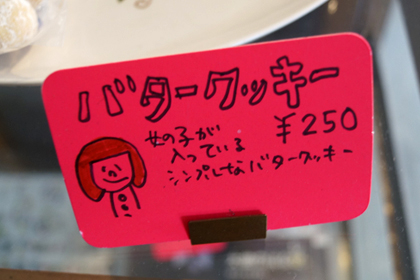 バタークッキー
¥250
女の子が
入っている
シンプルなバタークッキー